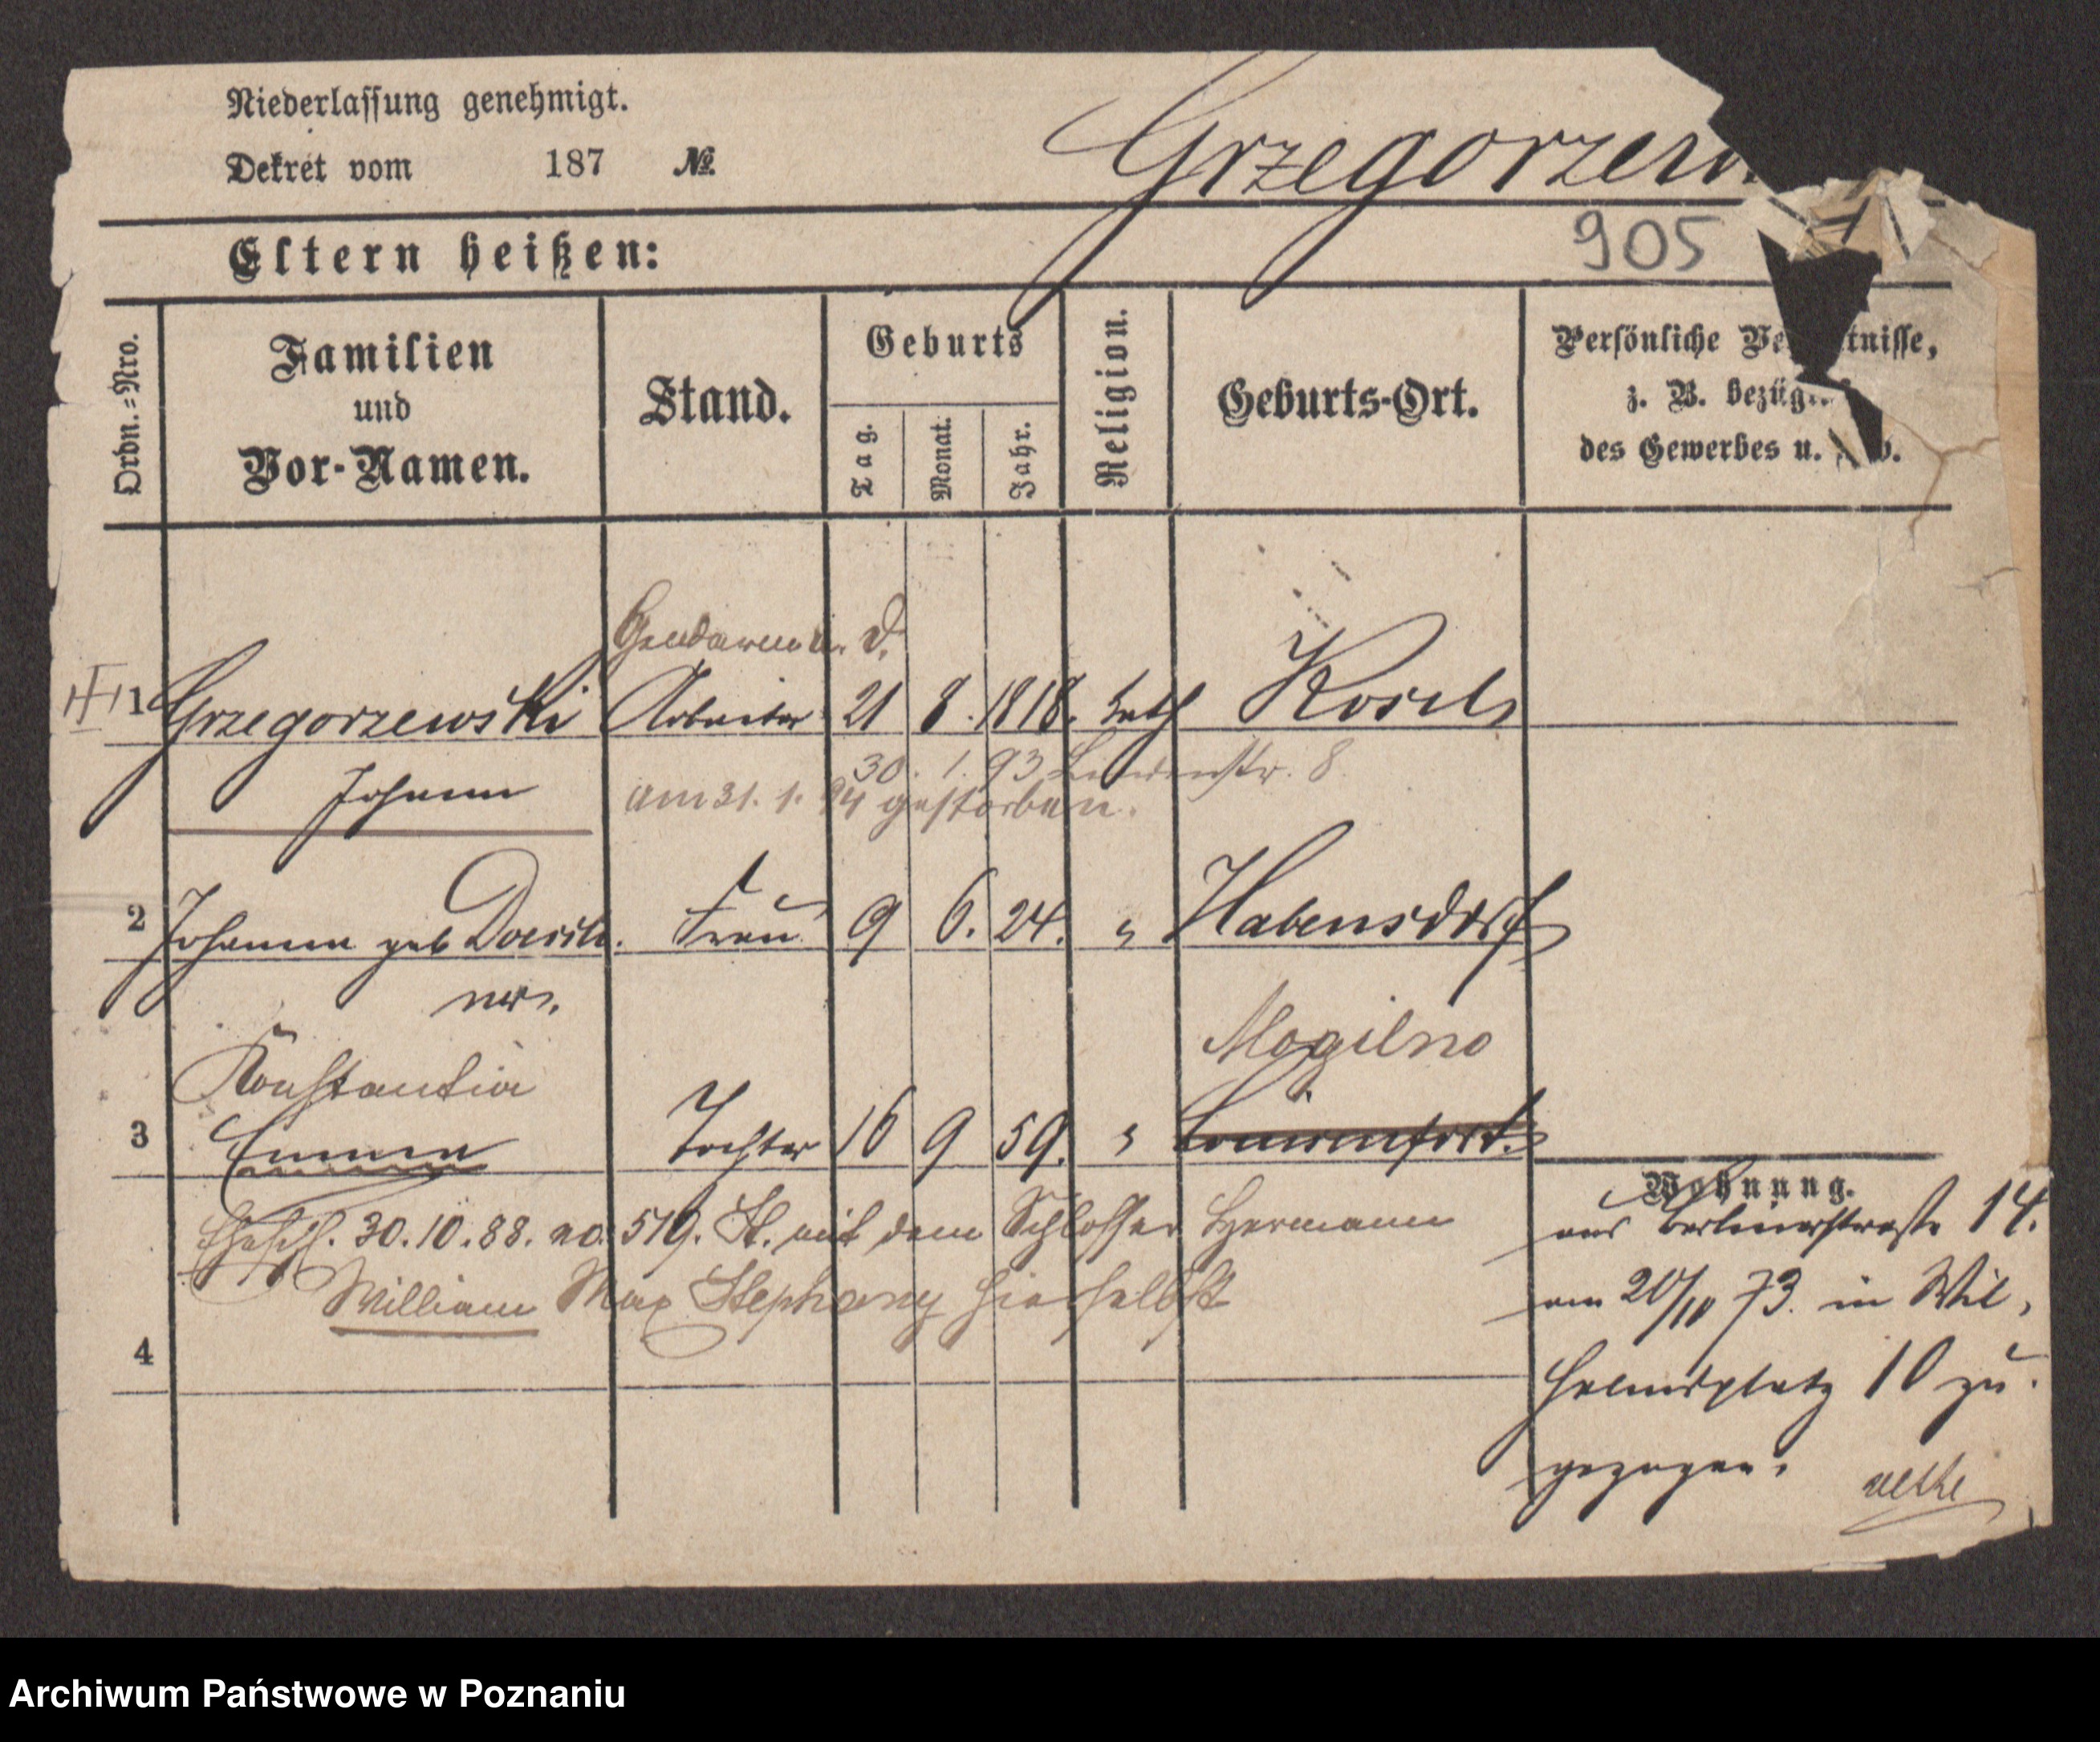 Niederlassung genehmigt.
Dekret vom 187 №.
Grzegorzew
905
Eltern heißen:
Ordn.=Nro.
Familien
und
Vor-Namen.
Stand.
Geburts
Tag.
Monat.
Jahr.
Religion.
Geburts-Ort.
Persönliche Ve tnisse,
z. B. bezügl.
des Gewerbes u.
Gendarm a. D.
1 Grzegorzewski Arbeiter 21 8. 1818. kath
30. 1. 93 Lindenstr. 8.
Johann am 31. 1. 94 gestorben.
2 Johanna geb Doersch. Frau 9 6. 24. " Habensdorf
ner.
Mogilno
Konstantia
3 Emma Tochter 16 9 59. "
Ehesch. 30. 10. 88. no. 519. St. mit dem Schlosser Hermann
William Max Stephany hierselbst
4
Wohnung.
aus Berlinerstraße 14.
am 20/10 73. in Wil,
helmsplatz 10 zu.
gezogen.
Archiwum Państwowe w Poznaniu